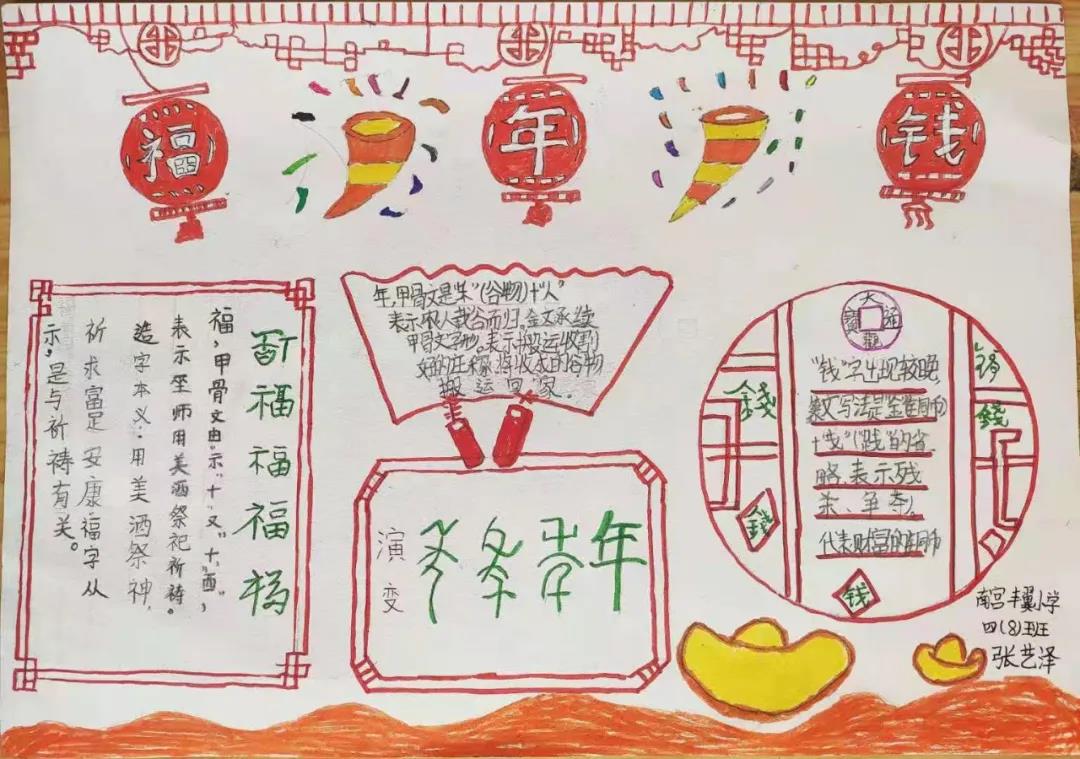 福
年
钱
福福福
福,甲骨文由“示”十“又”十“酉”,
表示巫师用美酒祭祀祈祷。
造字本义:用美酒祭神,
祈求富足安康.福字从
示,是与祈祷有关。
年,甲骨文是"禾"(谷物)十"人"
表示农人载谷而归。金文承续
甲骨文字形,表示搬运收割
好的庄稼,将收成的谷物
搬运回家.
演变
年
大观通宝
"钱"字出现较晚,
篆文写法是金
十"戋"("践"的省
略,表示残
杀、争夺)。
代表财富的铜币
錢
錢
钱
钱
南宫丰翼小学
四(8)班
张艺泽